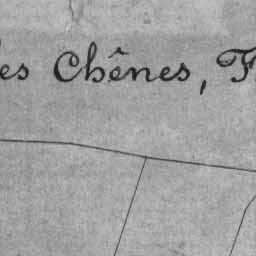 es Chênes, F